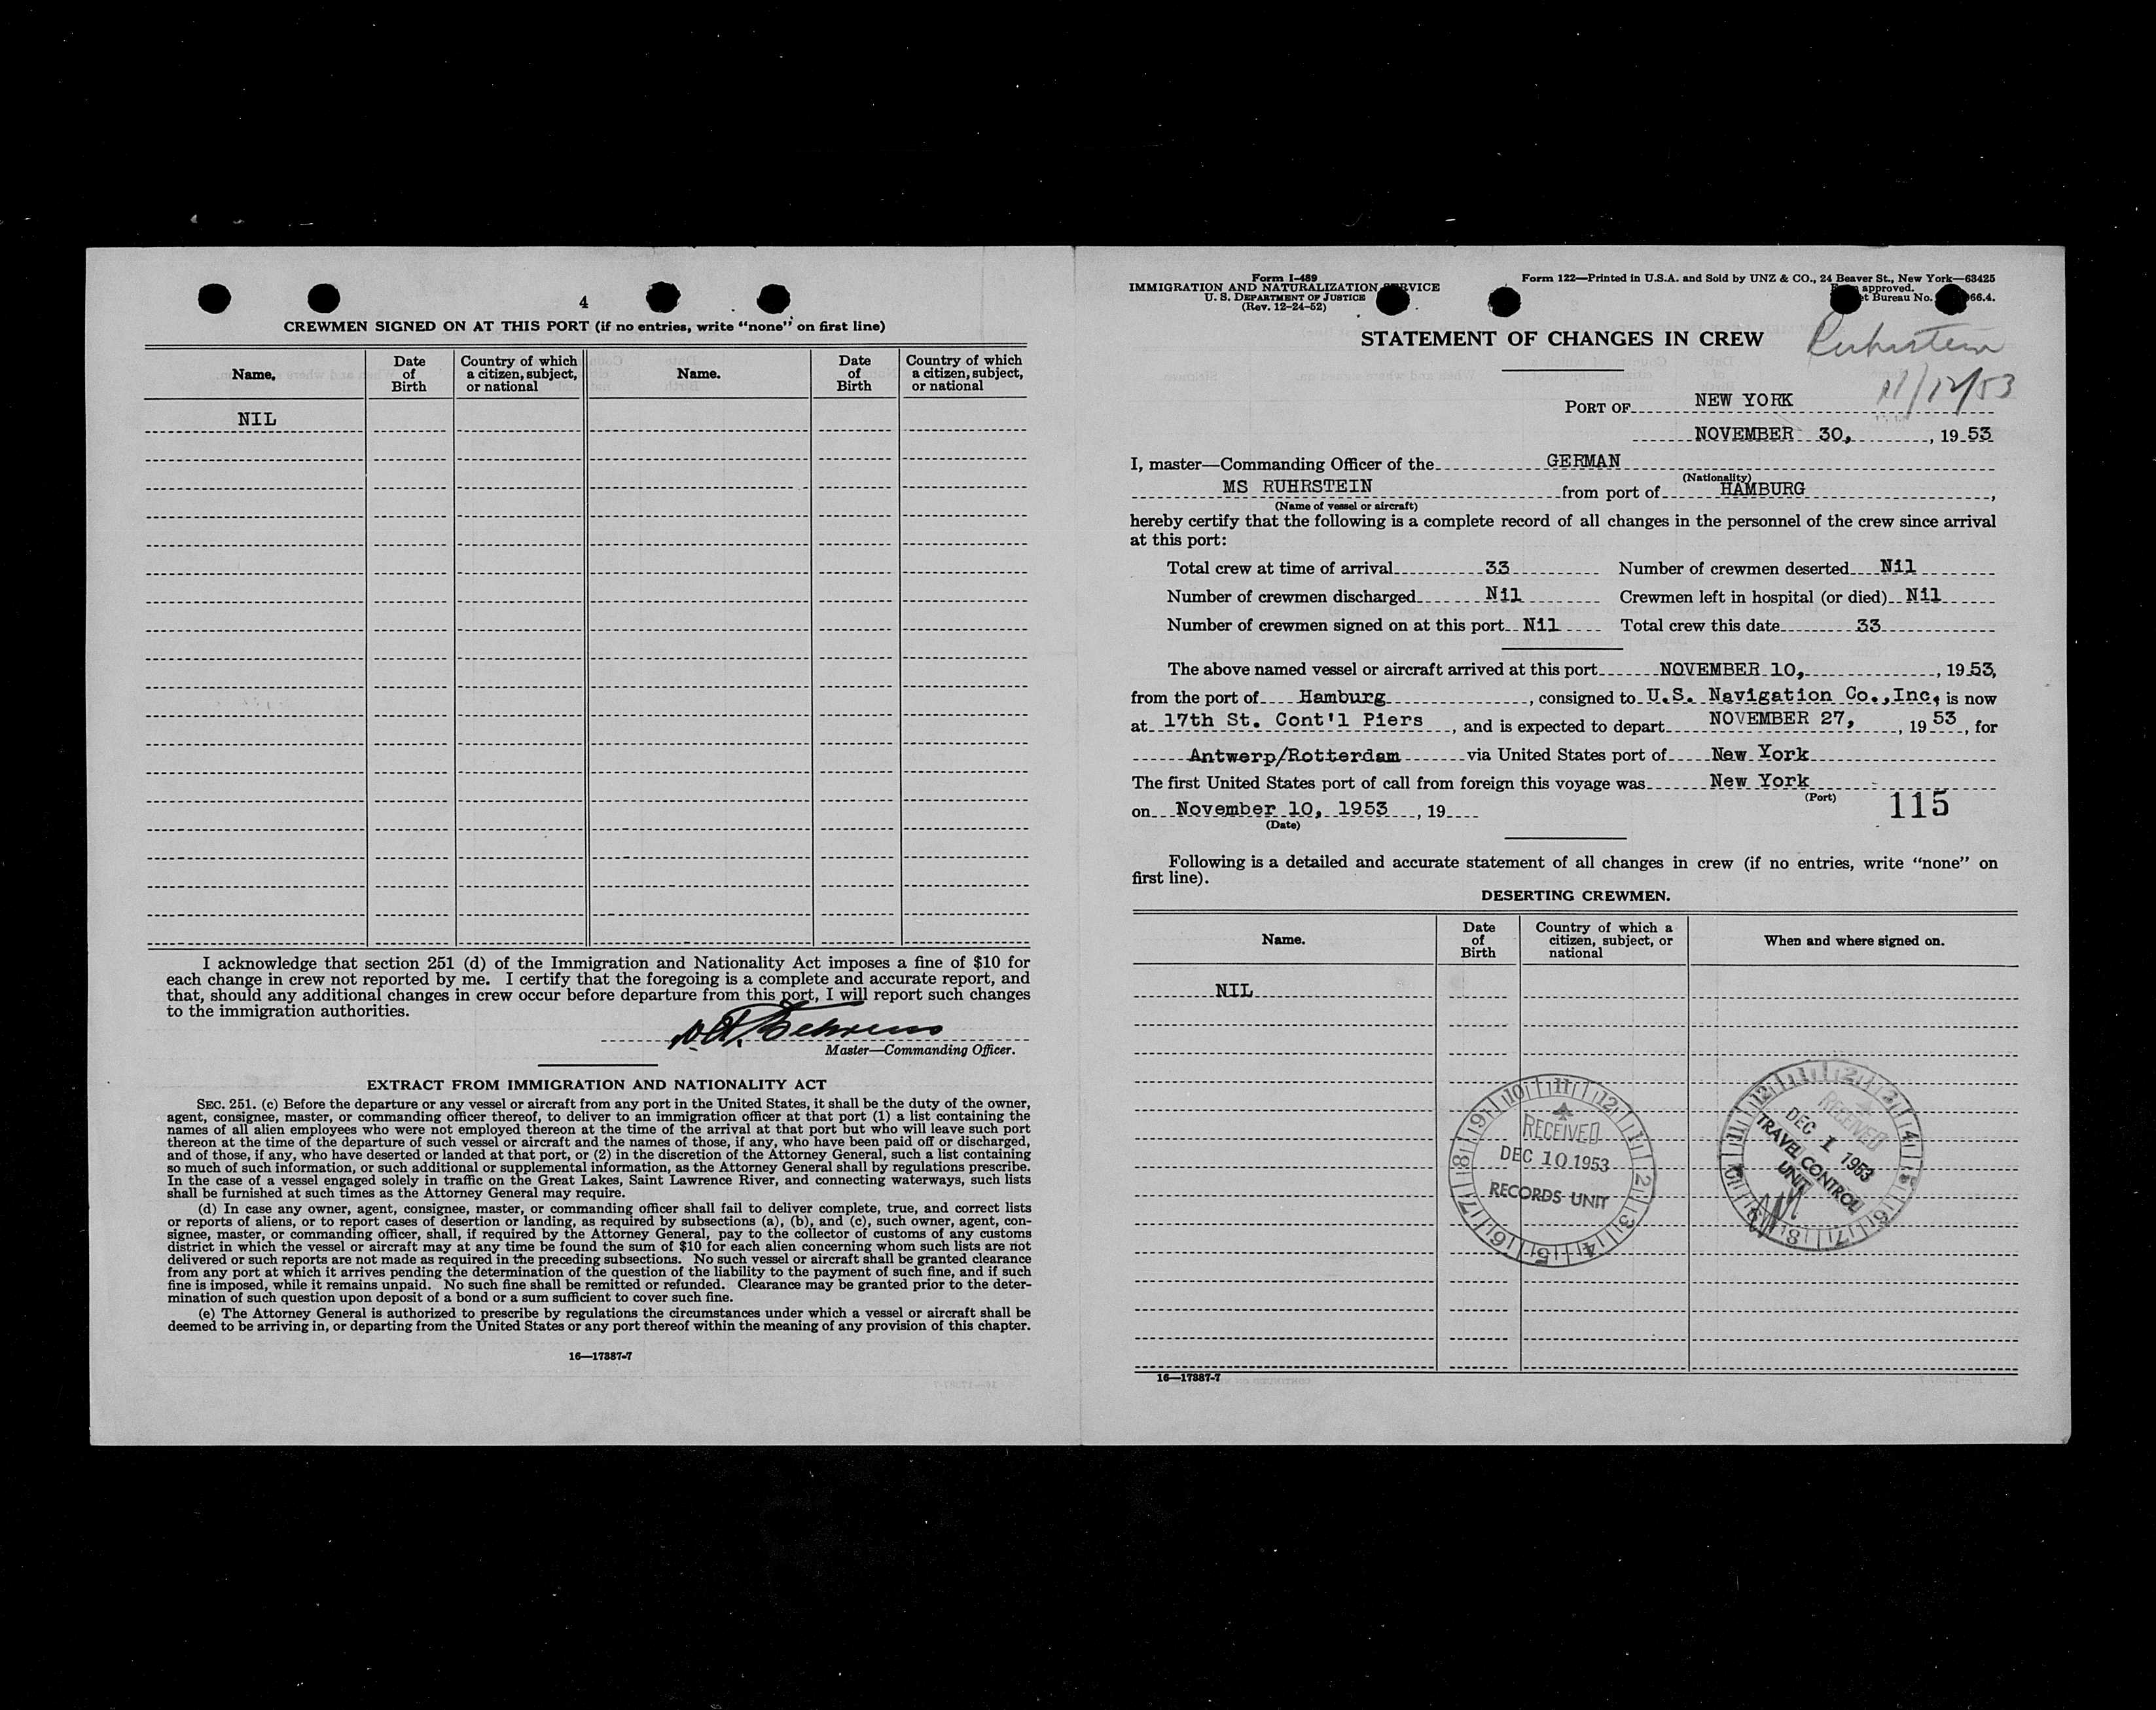 4
CREWMEN SIGNED ON AT THIS PORT (if no entries, write "none" on first line)
Name. Date of Birth Country of which a citizen, subject, or national Name. Date of Birth Country of which a citizen, subject, or national
NIL
I acknowledge that section 251 (d) of the Immigration and Nationality Act imposes a fine of $10 for
each change in crew not reported by me. I certify that the foregoing is a complete and accurate report, and
that, should any additional changes in crew occur before departure from this port, I will report such changes
to the immigration authorities.
Master—Commanding Officer.
EXTRACT FROM IMMIGRATION AND NATIONALITY ACT
SEC. 251. (c) Before the departure or any vessel or aircraft from any port in the United States, it shall be the duty of the owner,
agent, consignee, master, or commanding officer thereof, to deliver to an immigration officer at that port (1) a list containing the
names of all alien employees who were not employed thereon at the time of the arrival at that port but who will leave such port
thereon at the time of the departure of such vessel or aircraft and the names of those, if any, who have been paid off or discharged,
and of those, if any, who have deserted or landed at that port, or (2) in the discretion of the Attorney General, such a list containing
so much of such information, or such additional or supplemental information, as the Attorney General shall by regulations prescribe.
In the case of a vessel engaged solely in traffic on the Great Lakes, Saint Lawrence River, and connecting waterways, such lists
shall be furnished at such times as the Attorney General may require.
(d) In case any owner, agent, consignee, master, or commanding officer shall fail to deliver complete, true, and correct lists
or reports of aliens, or to report cases of desertion or landing, as required by subsections (a), (b), and (c), such owner, agent, con-
signee, master, or commanding officer, shall, if required by the Attorney General, pay to the collector of customs of any customs
district in which the vessel or aircraft may at any time be found the sum of $10 for each alien concerning whom such lists are not
delivered or such reports are not made as required in the preceding subsections. No such vessel or aircraft shall be granted clearance
from any port at which it arrives pending the determination of the question of the liability to the payment of such fine, and if such
fine is imposed, while it remains unpaid. No such fine shall be remitted or refunded. Clearance may be granted prior to the deter-
mination of such question upon deposit of a bond or a sum sufficient to cover such fine.
(e) The Attorney General is authorized to prescribe by regulations the circumstances under which a vessel or aircraft shall be
deemed to be arriving in, or departing from the United States or any port thereof within the meaning of any provision of this chapter.
16—17887-7
Form I-489
IMMIGRATION AND NATURALIZATION SERVICE
U. S. DEPARTMENT OF JUSTICE
(Rev. 12-24-52)
Form 122—Printed in U.S.A. and Sold by UNZ & CO., 24 Beaver St., New York—63425
approved.
Bureau No. 66.4.
STATEMENT OF CHANGES IN CREW
Ruhrstein
11/12/53
PORT OF NEW YORK
NOVEMBER 30, , 19 53
I, master—Commanding Officer of the GERMAN
(Nationality)
MS RUHRSTEIN from port of HAMBURG ,
(Name of vessel or aircraft)
hereby certify that the following is a complete record of all changes in the personnel of the crew since arrival
at this port:
Total crew at time of arrival 33 Number of crewmen deserted Nil
Number of crewmen discharged Nil Crewmen left in hospital (or died) Nil
Number of crewmen signed on at this port Nil Total crew this date 33
The above named vessel or aircraft arrived at this port NOVEMBER 10, , 19 53,
from the port of Hamburg , consigned to U.S. Navigation Co.,Inc, is now
at 17th St. Cont'l Piers , and is expected to depart NOVEMBER 27, , 19 53 , for
Antwerp/Rotterdam via United States port of New York
The first United States port of call from foreign this voyage was New York
(Port)
on November 10, 1953 , 19
(Date)
115
Following is a detailed and accurate statement of all changes in crew (if no entries, write "none" on
first line).
DESERTING CREWMEN.
Name. Date of Birth Country of which a citizen, subject, or national When and where signed on.
NIL
RECEIVED
DEC 10 1953
RECORDS UNIT
RECEIVED
DEC 1 1953
TRAVEL CONTROL
UNIT
16—17887-7